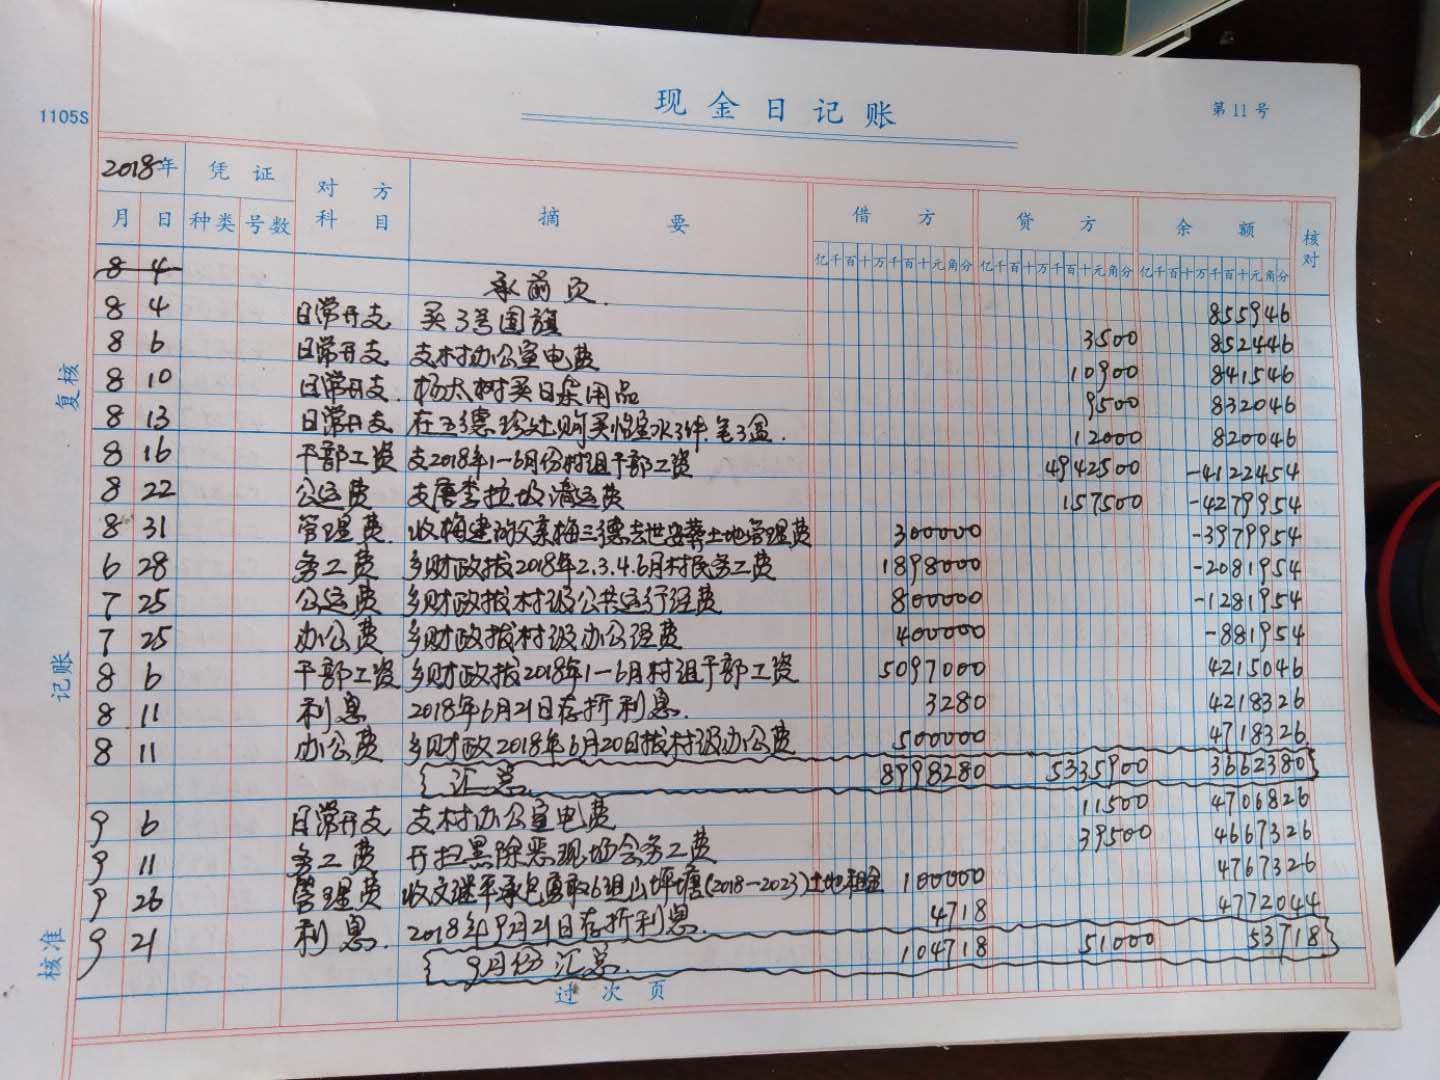 现金日记账
第 11 号
1105S
2018年 凭证 对方科目 摘要 借方 贷方 余额 核对
月 日 种类 号数 亿千百十万千百十元角分 亿千百十万千百十元角分 亿千百十万千百十元角分
8 4 承前页. 855946
8 4 日常开支 买3号国旗 3500 852446
8 6 日常开支 支村办公室电费 10900 841546
8 10 日常开支. 杨太树买日杂用品 9500 832046
8 13 日常开支 在王德珍处购买怡宝水3件.笔3盒. 12000 820046
8 16 干部工资 支2018年1-6月份村组干部工资 4942500 -4122454
8 22 公运费 支唐李垃圾清运费 157500 -4279954
8 31 管理费. 收梅建 父亲梅三德去世安葬土地管理费 300000 -3979954
6 28 务工费 乡财政拨2018年2.3.4.6月村民务工费 1898000 -2081954
7 25 公运费 乡财政拨村级公共运行经费 800000 -1281954
7 25 办公费 乡财政拨村级办公经费 400000 -881954
8 6 干部工资 乡财政拨2018年1-6月村组干部工资 5097000 4215046
8 11 利息 2018年6月21日存折利息. 3280 4218326
8 11 办公费 乡财政2018年6月20日拨村级办公费 500000 4718326
汇总 8998280 5335900 3662380
9 6 日常开支 支村办公室电费 11500 4706826
9 11 务工费 开扫黑除恶现场会务工费 39500 4667326
9 26 管理费 收文继平承包 6组山坪塘(2018-2023)土地租金 100000 4767326
9 21 利息. 2018年9月21日存折利息. 4718 4772044
9月份汇总. 104718 51000 53718
过次页
复核
记账
核准